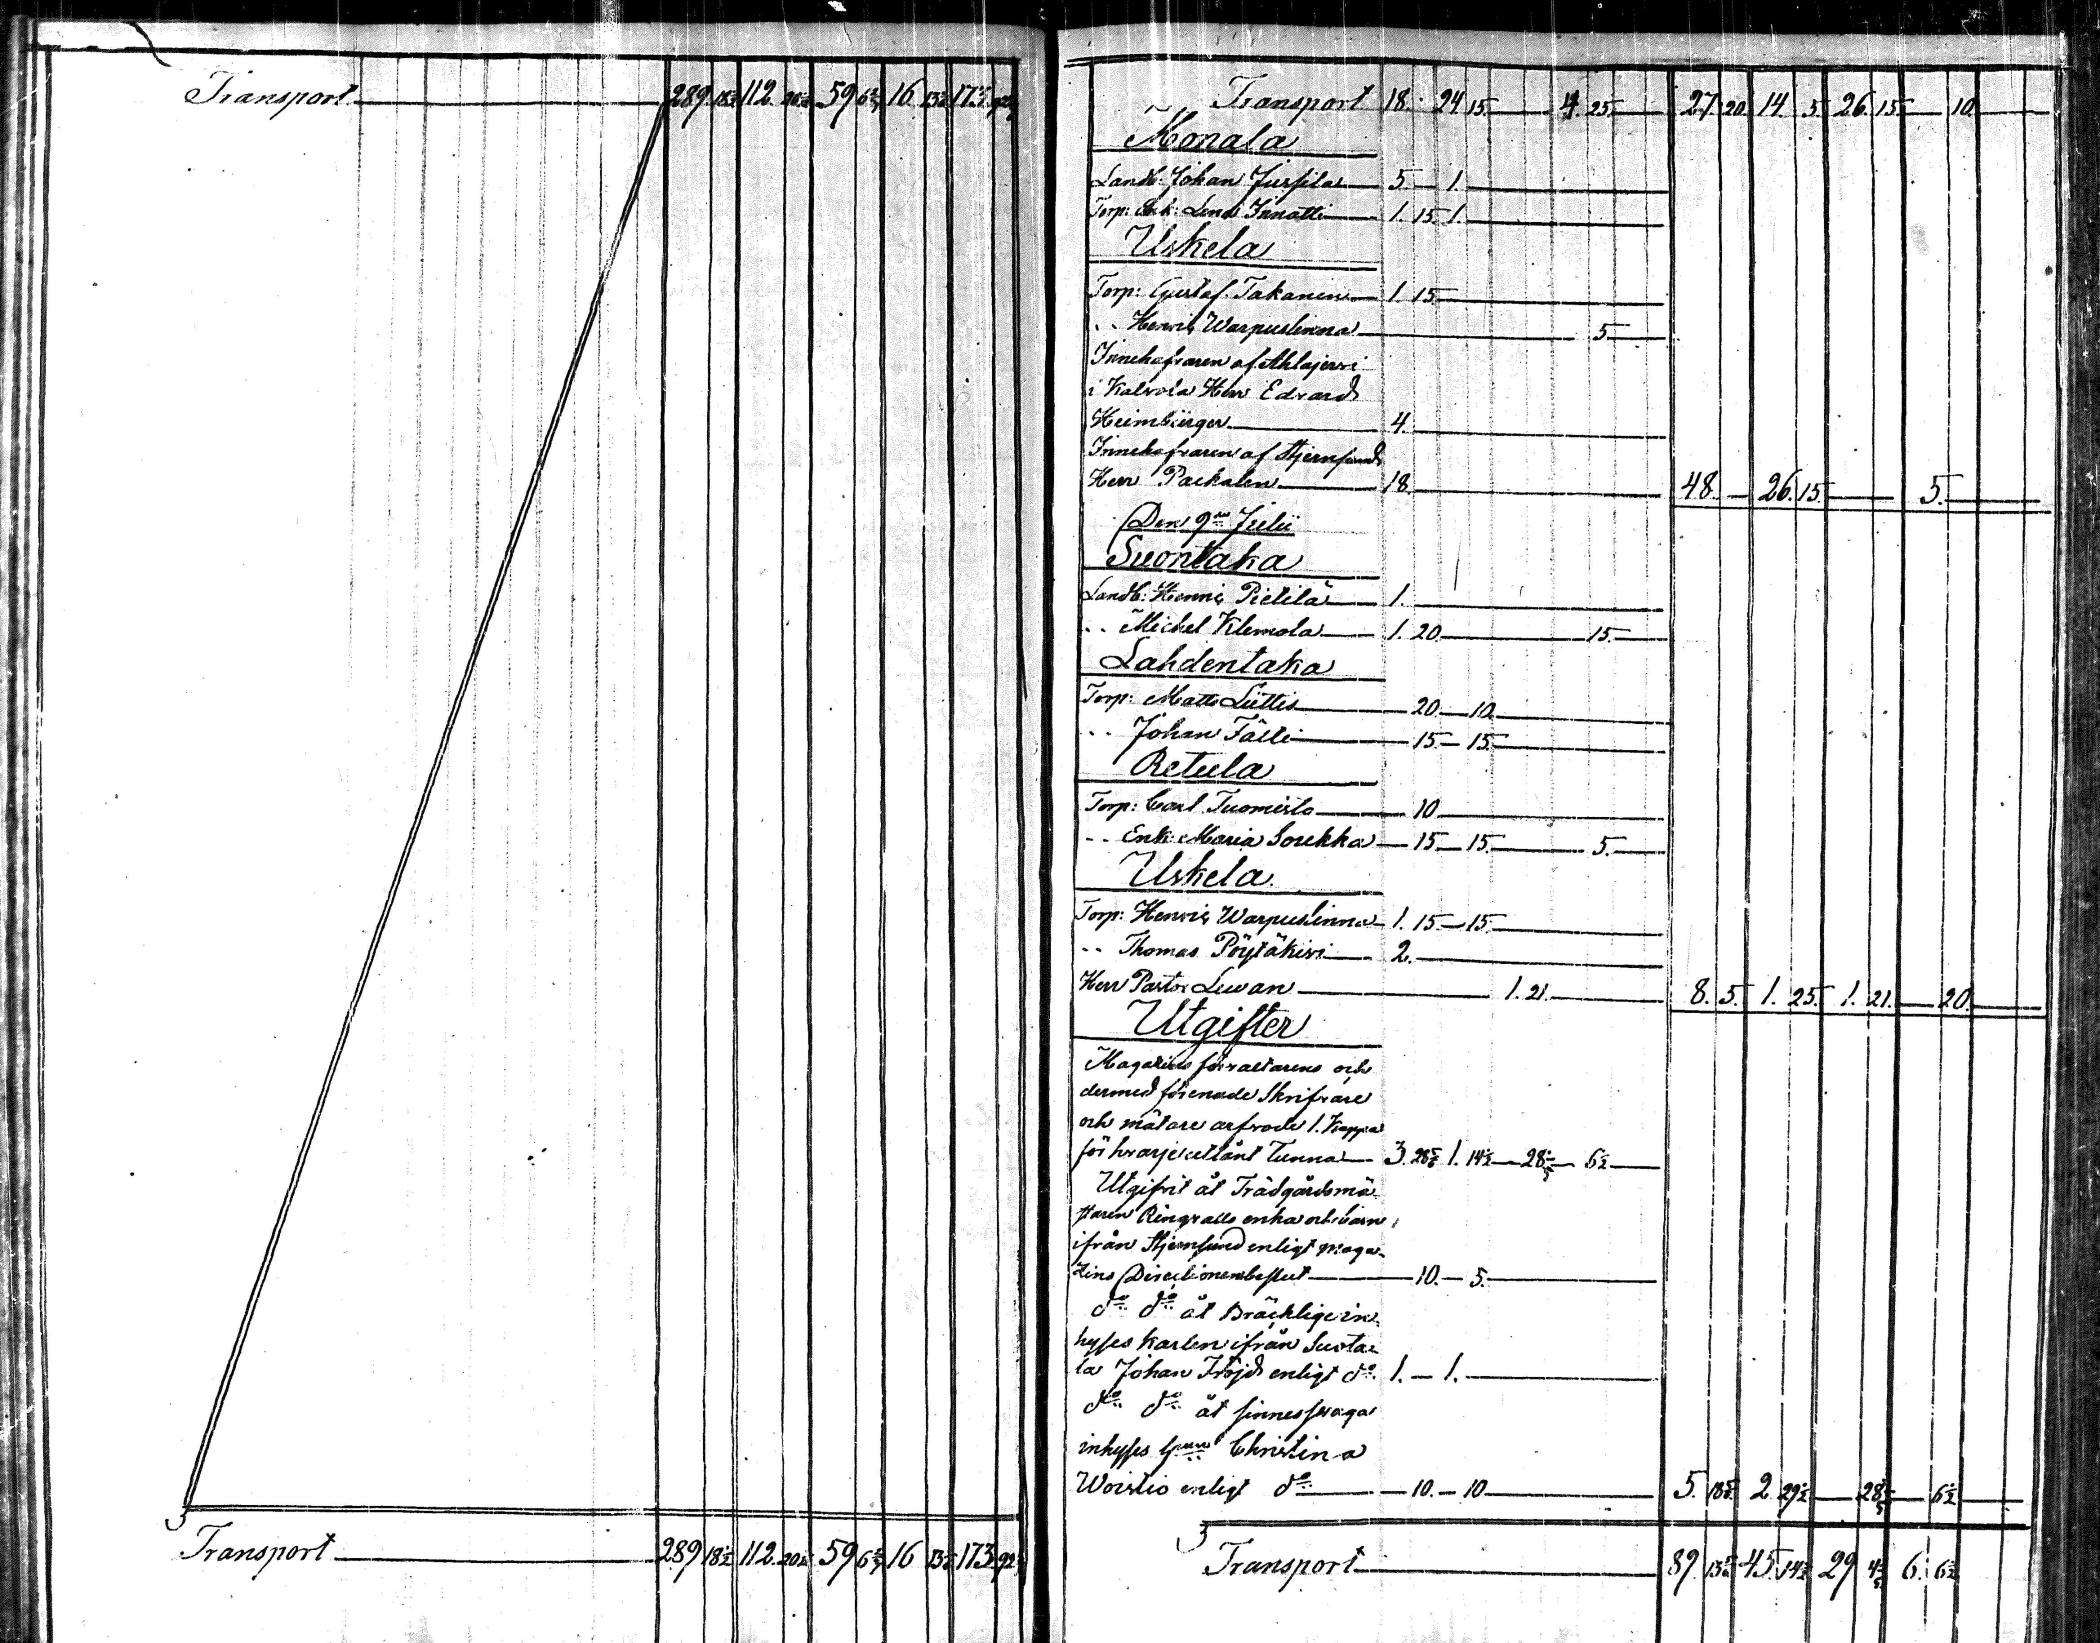 Transport 289 18½ 112 20 59 6 16 13½ 173 92
Transport 289 18½ 112 20 59 6 16 13½ 173 92
Transport 18. 24 15 4 25 27 20 14 5 26 15 10
Monala
Landb: Johan Jussila 5 1
Torp: Enk: Lena Innatti 1 15 1
Uskela
Torp: Gustaf Takanen 1 15
.. Henric Warpuslinna 5
Innehafvaren af Ahlajervi
i Kalvola Herr Edvard
Heimbürger 4
Innehafvaren af Stjernsund
Herr Packalen 18 48 26 15 5
Den 9de Julii
Suontaka
Landb: Henric Pietilä 1.
.. Michel Klemola 1. 20 15
Lahdentaka
Torp: Matts Liittis 20 10
.. Johan Fälli 15 15
Retula
Torp: Carl Tuomisto 10
.. Enk: Maria Sorekka 15 15 5
Uskela
Torp: Henric Warpuslinna 1. 15 15
.. Thomas Pöytäkivi 2.
Herr Pastor Lewan 1. 21. 8. 5. 1. 25. 1. 21. 20
Utgifter
Magazins förvaltarens och
dermed förenade Skrifvare
och mätare arfvode 1. Kappa
för hvarje utlånt Tunna 3. 28 1. 14½ 28 6½
Utgifvit åt Trädgårdsmä-
staren Ringvalls enka och barn
ifrån Stjernsund enligt maga-
zins Directionens beslut 10. 5.
do do åt Bräcklige in-
hyses karlen ifrån Suota-
la Johan Fröjd enligt do 1. 1.
do do åt sinnessvaga
inhyses Christina
Woistio enligt do 10. 10 5. 18 2 29½ 28 6½
Transport 89. 13 45. 14½ 29 4 6. 6½